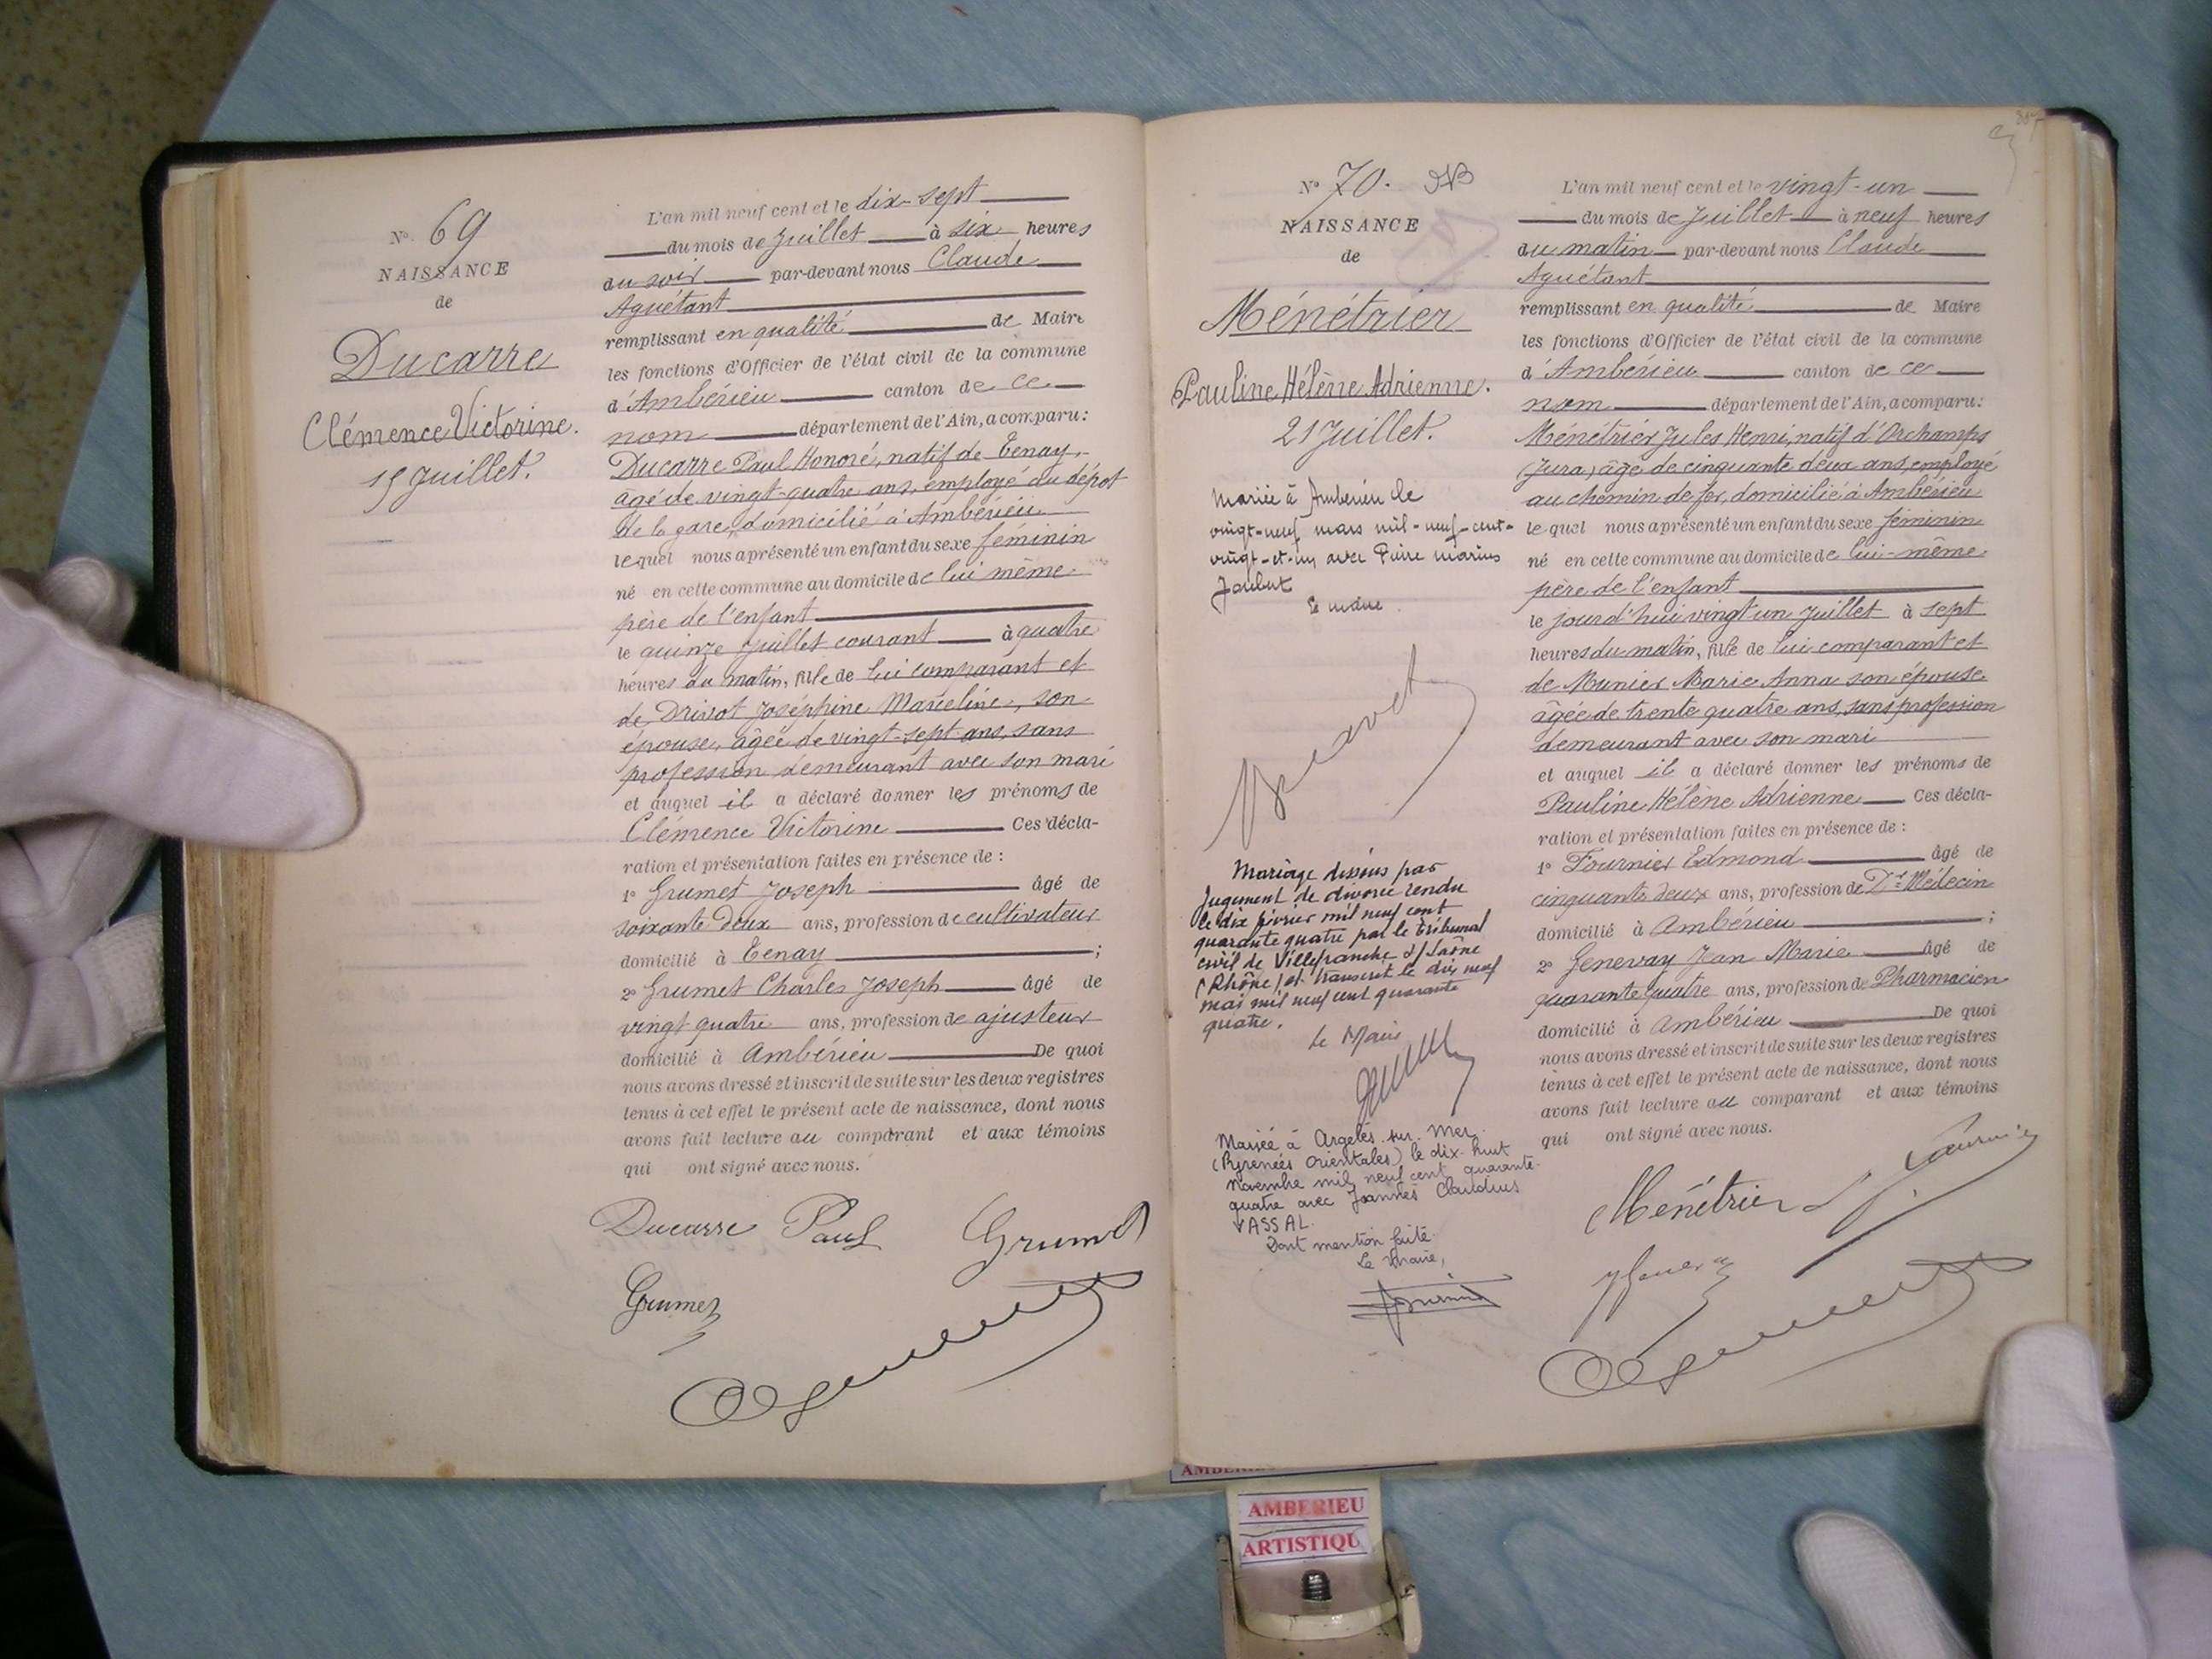 N° 69
NAISSANCE
de
Ducarre
Clémence Victorine.
15 Juillet.
L'an mil neuf cent et le dix-sept
du mois de Juillet à six heures
du soir par-devant nous Claude
Aguétant
remplissant en qualité de Maire
les fonctions d'Officier de l'état civil de la commune
d'Ambérieu canton de ce
nom département de l'Ain, a comparu:
Ducarre Paul Honoré, natif de Tenay,
âgé de vingt-quatre ans, employé au dépôt
de la gare, domicilié à Ambérieu
lequel nous a présenté un enfant du sexe féminin
né en cette commune au domicile de lui même
père de l'enfant
le quinze Juillet courant à quatre
heures du matin, fille de lui comparant et
de Drivot Joséphine Marceline, son
épouse, âgée de vingt-sept ans, sans
profession demeurant avec son mari
et auquel il a déclaré donner les prénoms de
Clémence Victorine Ces décla-
ration et présentation faites en présence de :
1° Grumet Joseph âgé de
soixante deux ans, profession de cultivateur
domicilié à Tenay ;
2° Grumet Charles Joseph âgé de
vingt quatre ans, profession de ajusteur
domicilié à Ambérieu De quoi
nous avons dressé et inscrit de suite sur les deux registres
tenus à cet effet le présent acte de naissance, dont nous
avons fait lecture au comparant et aux témoins
qui ont signé avec nous.
Ducarre Paul Grumet
Grumet
N° 70.
NAISSANCE
de
Ménétrier
Pauline Hélène Adrienne.
21 Juillet.
Mariée à Ambérieu le
vingt-neuf mars mil-neuf-cent-
vingt-et-un avec Pierre Marius
Joubert
Le maire
Mariage dissous par
Jugement de divorce rendu
le dix février mil neuf cent
quarante quatre par le tribunal
civil de Villefranche s/Saône
(Rhône) et transcrit le dix neuf
mai mil neuf cent quarante
quatre.
Le Maire
Mariée à Argelès-sur-Mer
(Pyrénées Orientales) le dix-huit
novembre mil neuf cent quarante-
quatre avec Joannès Claudius
VASSAL.
Dont mention faite.
Le Maire,
L'an mil neuf cent et le vingt-un
du mois de Juillet à neuf heures
du matin par-devant nous Claude
Aguétant
remplissant en qualité de Maire
les fonctions d'Officier de l'état civil de la commune
d'Ambérieu canton de ce
nom département de l'Ain, a comparu:
Ménétrier Jules Henri, natif d'Orchamps
(Jura) âgé de cinquante deux ans, employé
au chemin de fer, domicilié à Ambérieu
lequel nous a présenté un enfant du sexe féminin
né en cette commune au domicile de lui-même
père de l'enfant
le jourd'hui vingt un Juillet à sept
heures du matin, fille de lui comparant et
de Munier Marie Anna son épouse
âgée de trente quatre ans, sans profession
demeurant avec son mari
et auquel il a déclaré donner les prénoms de
Pauline Hélène Adrienne Ces décla-
ration et présentation faites en présence de :
1° Fournier Edmond âgé de
cinquante deux ans, profession de Dr Médecin
domicilié à Ambérieu ;
2° Genevay Jean Marie âgé de
quarante quatre ans, profession de Pharmacien
domicilié à Ambérieu De quoi
nous avons dressé et inscrit de suite sur les deux registres
tenus à cet effet le présent acte de naissance, dont nous
avons fait lecture au comparant et aux témoins
qui ont signé avec nous.
Ménétrier
AMBERIEU
ARTISTIQU